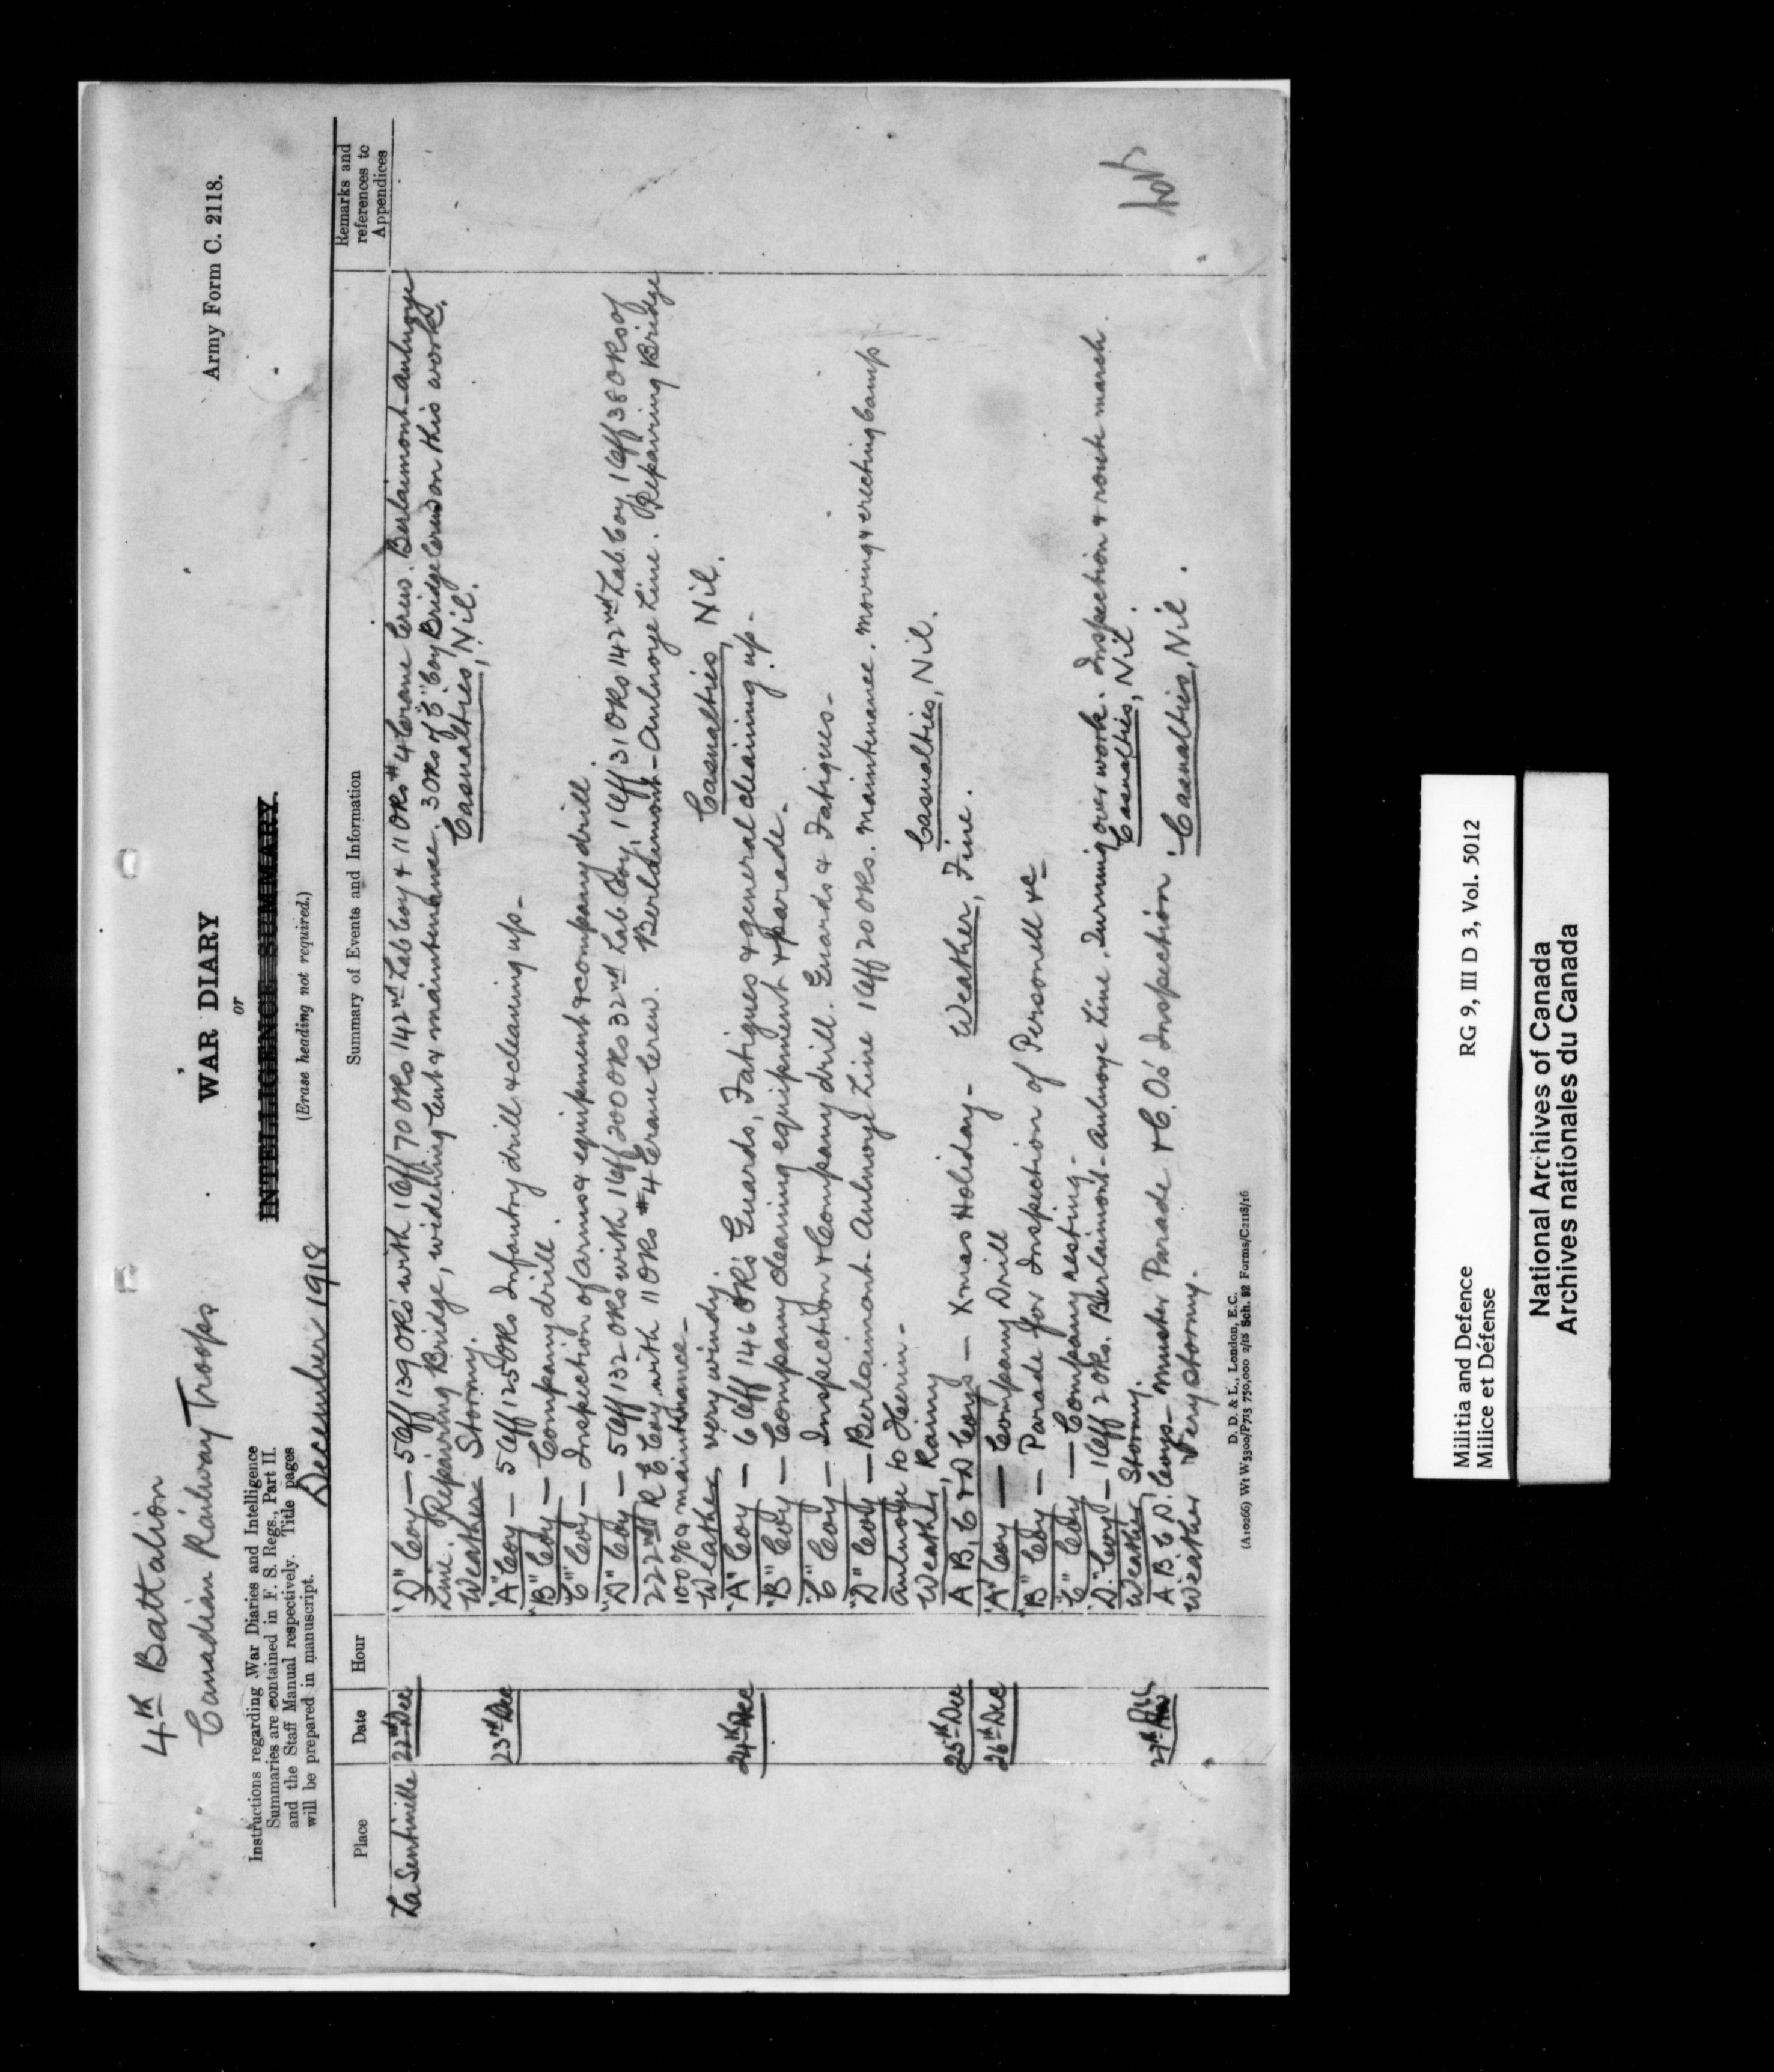 4th Battalion
Canadian Railway Troops
Army Form C. 2118.
WAR DIARY
or
INTELLIGENCE SUMMARY.
(Erase heading not required.)
Instructions regarding War Diaries and Intelligence
Summaries are contained in F. S. Regs., Part II.
and the Staff Manual respectively. Title pages
will be prepared in manuscript.
December 1918
Place Date Hour Summary of Events and Information Remarks and references to Appendices
La Sentinelle 22nd Dec "D" Coy — 5 Off 139 ORs with 1 Off 70 ORs 142nd Lab Coy & 11 ORs #4 Crane Crew. Berlaimont-Aulnoye
Line. Repairing Bridge, widening Cut & maintenance. 30Rs of "C" Coy Bridge Crew on this work.
Weather Stormy. Casualties, Nil.
23rd Dec "A" Coy — 5 Off 125 ORs Infantry drill & cleaning up-
"B" Coy — Company drill.
"C" Coy — Inspection of arms & equipment & company drill.
"D" Coy — 5 Off 132 ORs with 1 Off 200 ORs 32nd Lab. Coy, 1 Off 31 ORs 142nd Lab. Coy, 1 Off 38 ORs of
222nd R E Coy. with 11 ORs #4 Crane Crew. Berlaimont-Aulnoye Line. Repairing Bridge
100% & maintenance-
Weather, very windy. Casualties, Nil.
24th Dec "A" Coy — 6 Off 146 ORs Guards, Fatigues & general cleaning up-
"B" Coy — Company cleaning equipment & parade-
"C" Coy — Inspection & Company drill. Guards & Fatigues-
"D" Coy — Berlaimont-Aulnoye Line 1 Off 20 ORs. Maintenance. Moving & erecting Camp
Aulnoye to Herin-
Weather, Rainy Casualties, Nil.
25th Dec A B, C & D Coys — Xmas Holiday- Weather, Fine.
26th Dec "A" Coy — Company Drill
"B" Coy — Parade for Inspection of Personell &c
"C" Coy — Company resting-
"D" Coy — 1 Off 2 ORs. Berlaimont-Aulnoye Line. Turning over work. Inspection & route march.
Weather, Stormy. Casualties, Nil.
27th Dec A B C D Coys — Muster Parade & C.O's Inspection.
Weather Very Stormy. Casualties, Nil.
D. D. & L., London, E.C.
(A10266) Wt W5300/P713 750,000 2/18 Sch. 52 Forms/C2118/16
Militia and Defence
Milice et Défense
RG 9, III D 3, Vol. 5012
National Archives of Canada
Archives nationales du Canada